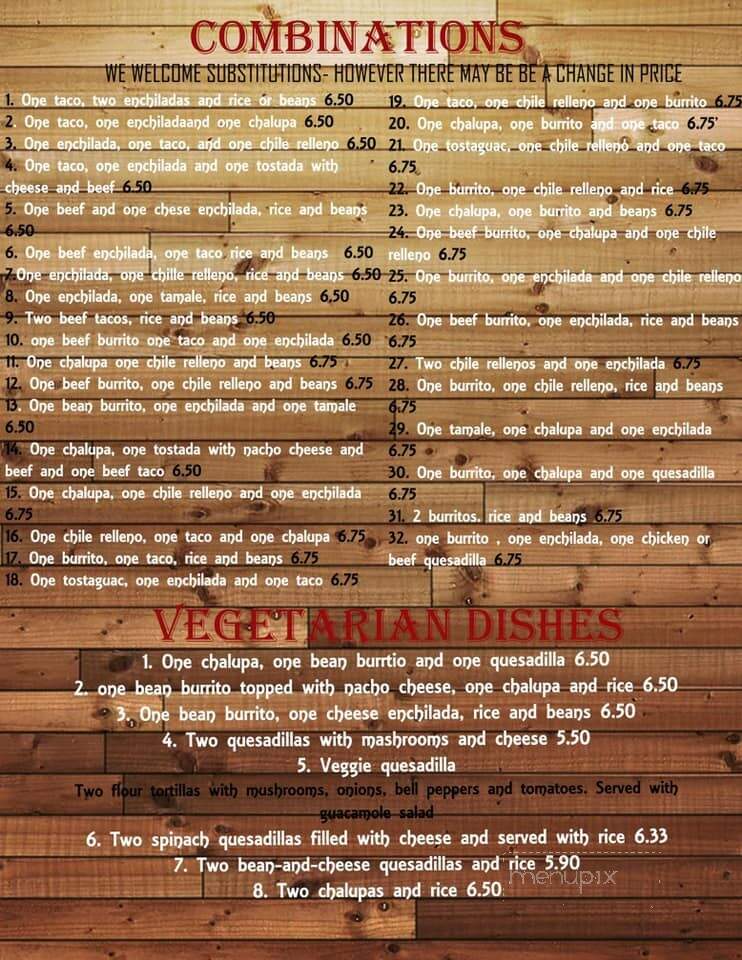 COMBINATIONS
WE WELCOME SUBSTITUTIONS- HOWEVER THERE MAY BE BE A CHANGE IN PRICE
1. One taco, two enchiladas and rice or beans 6.50
2. One taco, one enchiladaand one chalupa 6.50
3. One enchilada, one taco, and one chile relleno 6.50
4. One taco, one enchilada and one tostada with
cheese and beef 6.50
5. One beef and one chese enchilada, rice and beans
6.50
6. One beef enchilada, one taco rice and beans 6.50
7.One enchilada, one chille relleno, rice and beans 6.50
8. One enchilada, one tamale, rice and beans 6,50
9. Two beef tacos, rice and beans 6.50
10. one beef burrito one taco and one enchilada 6.50
11. One chalupa one chile relleno and beans 6.75
12. One beef burrito, one chile relleno and beans 6.75
13. One bean burrito, one enchilada and one tamale
6.50
14. One chalupa, one tostada with nacho cheese and
beef and one beef taco 6.50
15. One chalupa, one chile relleno and one enchilada
6.75
16. One chile relleno, one taco and one chalupa 6.75
17. One burrito, one taco, rice and beans 6.75
18. One tostaguac, one enchilada and one taco 6.75
19. One taco, one chile relleno and one burrito 6.75
20. One chalupa, one burrito and one taco 6.75'
21. One tostaguac, one chile relleno and one taco
6.75
22. One burrito, one chile relleno and rice 6.75
23. One chalupa, one burrito and beans 6.75
24. One beef burrito, one chalupa and one chile
relleno 6.75
25. One burrito, one enchilada and one chile relleno
6.75
26. One beef burrito, one enchilada, rice and beans
6.75
27. Two chile rellenos and one enchilada 6.75
28. One burrito, one chile relleno, rice and beans
6.75
29. One tamale, one chalupa and one enchilada
6.75
30. One burrito, one chalupa and one quesadilla
6.75
31. 2 burritos. rice and beans 6.75
32. one burrito , one enchilada, one chicken or
beef quesadilla 6.75
VEGETARIAN DISHES
1. One chalupa, one bean burrtio and one quesadilla 6.50
2. one bean burrito topped with nacho cheese, one chalupa and rice 6.50
3. One bean burrito, one cheese enchilada, rice and beans 6.50
4. Two quesadillas with mashrooms and cheese 5.50
5. Veggie quesadilla
Two flour tortillas with mushrooms, onions, bell peppers and tomatoes. Served with
guacamole salad
6. Two spinach quesadillas filled with cheese and served with rice 6.33
7. Two bean-and-cheese quesadillas and rice 5.90
8. Two chalupas and rice 6.50
menupix